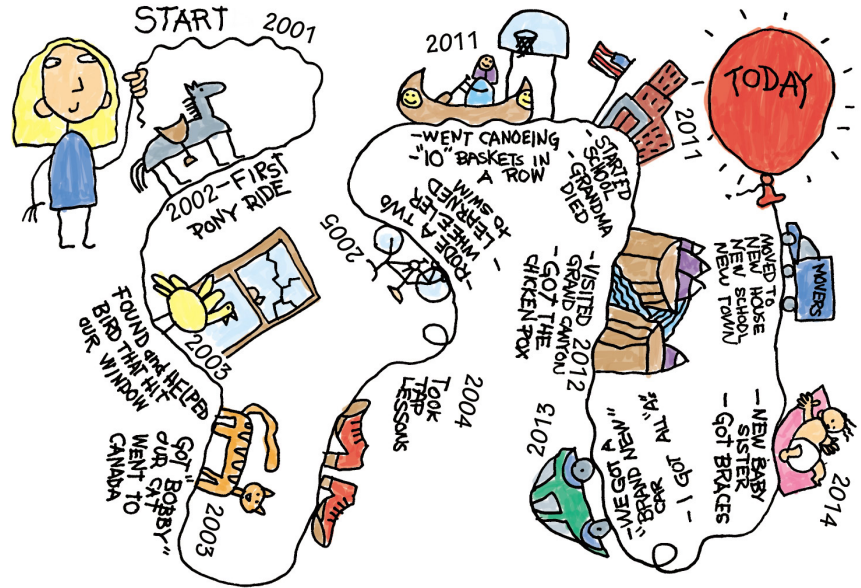 START
2001
2002-FIRST
PONY RIDE
2003
FOUND and HELPED
BIRD THAT HIT
OUR WINDOW
GOT "BOBBY"
OUR CAT
WENT TO
CANADA
2003
2004
TOOK
TAP
LESSONS
2005
-RODE A TWO
WHEELER
- LEARNED
TO SWIM
2011
-WENT CANOEING
-"10" BASKETS IN
A ROW
2011
-STARTED
SCHOOL
-GRANDMA
DIED
2012
-VISITED
GRAND CANYON
-GOT THE
CHICKEN POX
2013
-WE GOT A
"BRAND NEW"
CAR
- I GOT ALL "A"s
2014
-NEW BABY
SISTER
-GOT BRACES
MOVED TO
NEW HOUSE
NEW SCHOOL
NEW TOWN
MOVERS
TODAY